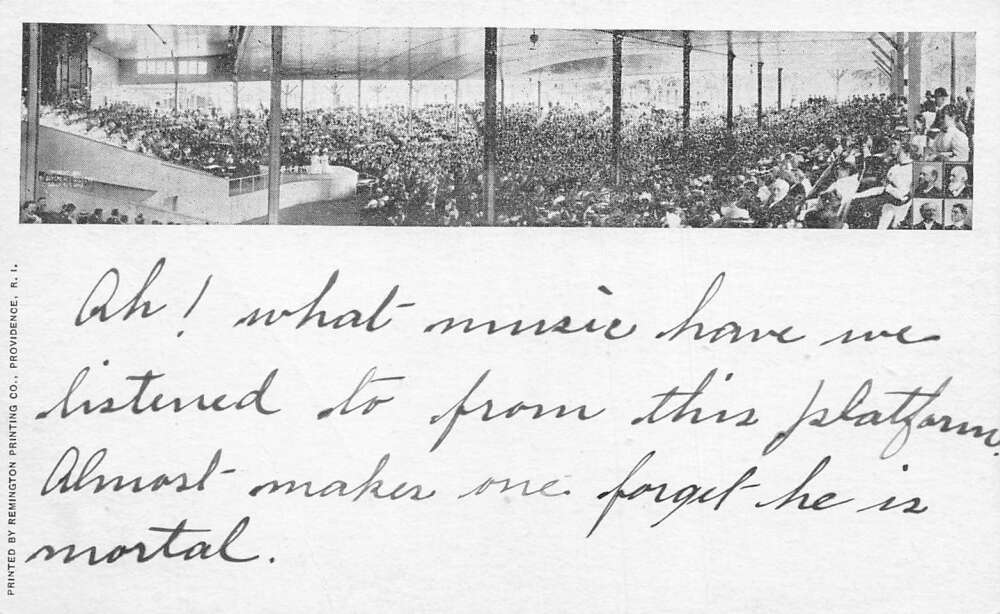 Ah! what music have we
listened to from this platform.
Almost makes one forget he is
mortal.
PRINTED BY REMINGTON PRINTING CO., PROVIDENCE, R. I.